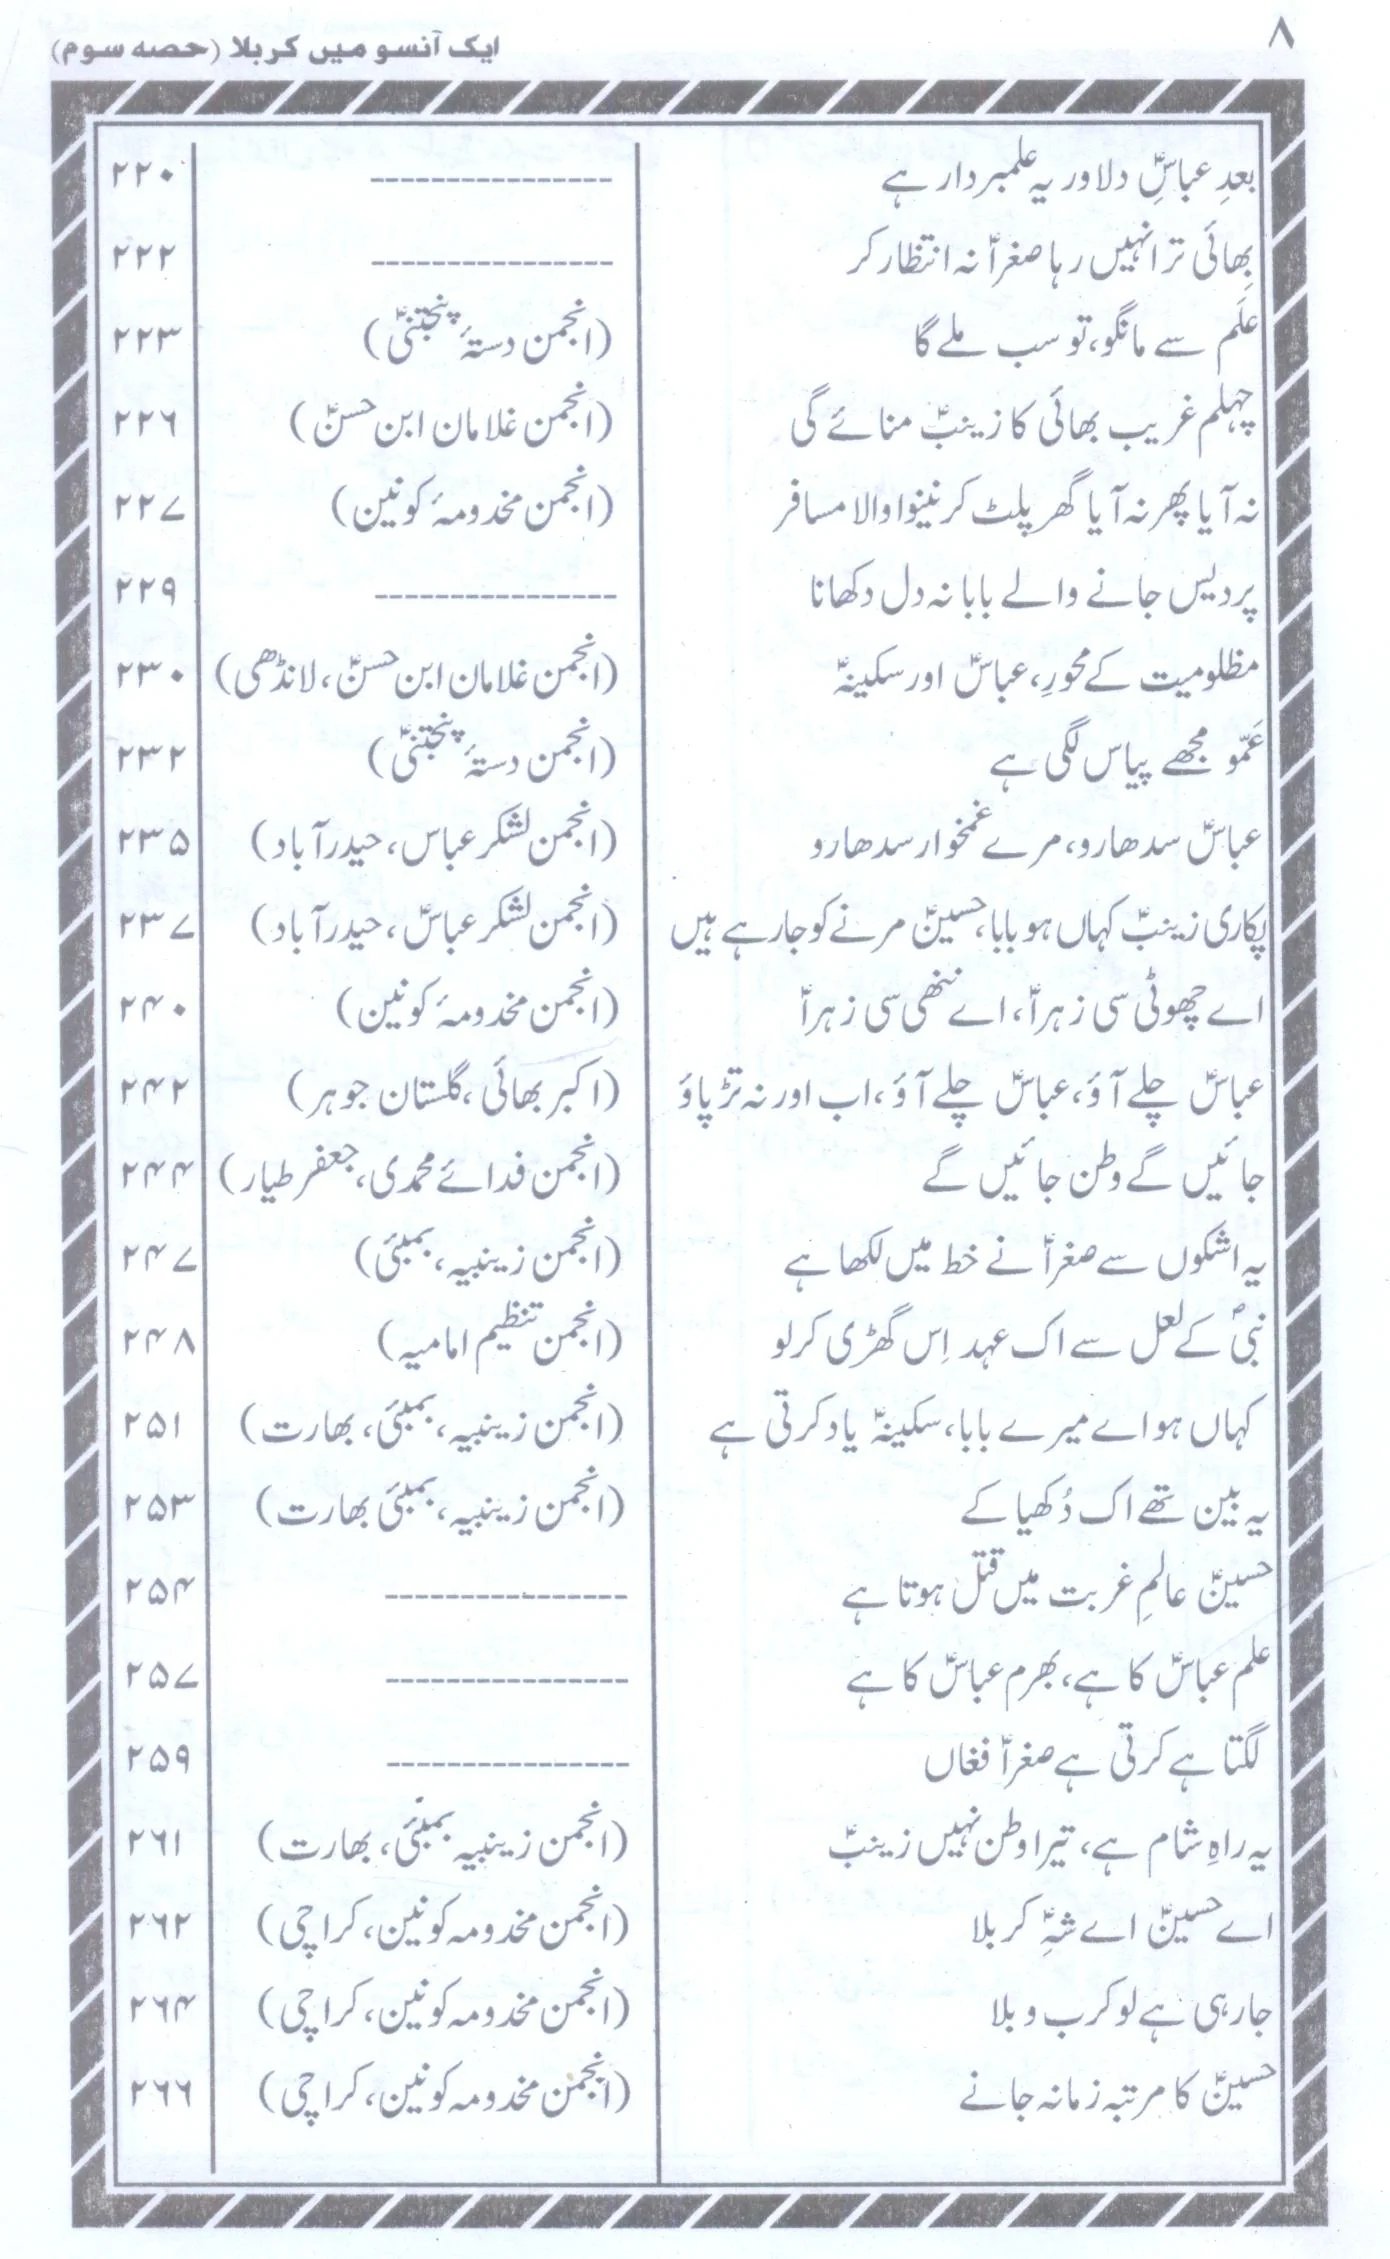 ۸
ایک آنسو میں کربلا (حصہ سوم)
بعدِ عباسؑ دلاور یہ علمبردار ہے --------------- ۲۲۰
بھائی ترا نہیں رہا صغراؑ نہ انتظار کر --------------- ۲۲۲
عَلَم سے مانگو، تو سب ملے گا (انجمن دستۂ پنجتنیؑ) ۲۲۳
چہلم غریب بھائی کا زینبؑ منائے گی (انجمن غلامان ابن حسنؑ) ۲۲۶
نہ آیا پھر نہ آیا گھر پلٹ کر نینوا والا مسافر (انجمن مخدومۂ کونین) ۲۲۷
پردیس جانے والے بابا نہ دل دکھانا --------------- ۲۲۹
مظلومیت کے محور، عباسؑ اور سکینہؑ (انجمن غلامان ابن حسنؑ، لانڈھی) ۲۳۰
عَمّو مجھے پیاس لگی ہے (انجمن دستۂ پنجتنیؑ) ۲۳۲
عباسؑ سدھارو، مرے غمخوار سدھارو (انجمن لشکر عباس، حیدرآباد) ۲۳۵
پکاری زینبؑ کہاں ہو بابا، حسینؑ مرنے کو جا رہے ہیں (انجمن لشکر عباسؑ، حیدرآباد) ۲۳۷
اے چھوٹی سی زہراؑ، اے ننھی سی زہراؑ (انجمن مخدومۂ کونین) ۲۴۰
عباسؑ چلے آؤ، عباسؑ چلے آؤ، اب اور نہ تڑپاؤ (اکبر بھائی، گلستان جوہر) ۲۴۲
جائیں گے وطن جائیں گے (انجمن فدائے محمدی، جعفر طیار) ۲۴۴
یہ اشکوں سے صغراؑ نے خط میں لکھا ہے (انجمن زینبیہ، بمبئی) ۲۴۷
نبیؐ کے لعل سے اک عہد اِس گھڑی کر لو (انجمن تنظیم امامیہ) ۲۴۸
کہاں ہو اے میرے بابا، سکینہؑ یاد کرتی ہے (انجمن زینبیہ، بمبئی، بھارت) ۲۵۱
یہ بین تھے اک دُکھیا کے (انجمن زینبیہ، بمبئی بھارت) ۲۵۳
حسینؑ عالمِ غربت میں قتل ہوتا ہے --------------- ۲۵۴
علم عباسؑ کا ہے، بھرم عباسؑ کا ہے --------------- ۲۵۷
لگتا ہے کرتی ہے صغراؑ فغاں --------------- ۲۵۹
یہ راہِ شام ہے، تیرا وطن نہیں زینبؑ (انجمن زینبیہ بمبئی، بھارت) ۲۶۱
اے حسینؑ اے شہِؑ کربلا (انجمن مخدومہ کونین، کراچی) ۲۶۲
جا رہی ہے لو کرب و بلا (انجمن مخدومہ کونین، کراچی) ۲۶۴
حسینؑ کا مرتبہ زمانہ جانے (انجمن مخدومہ کونین، کراچی) ۲۶۶